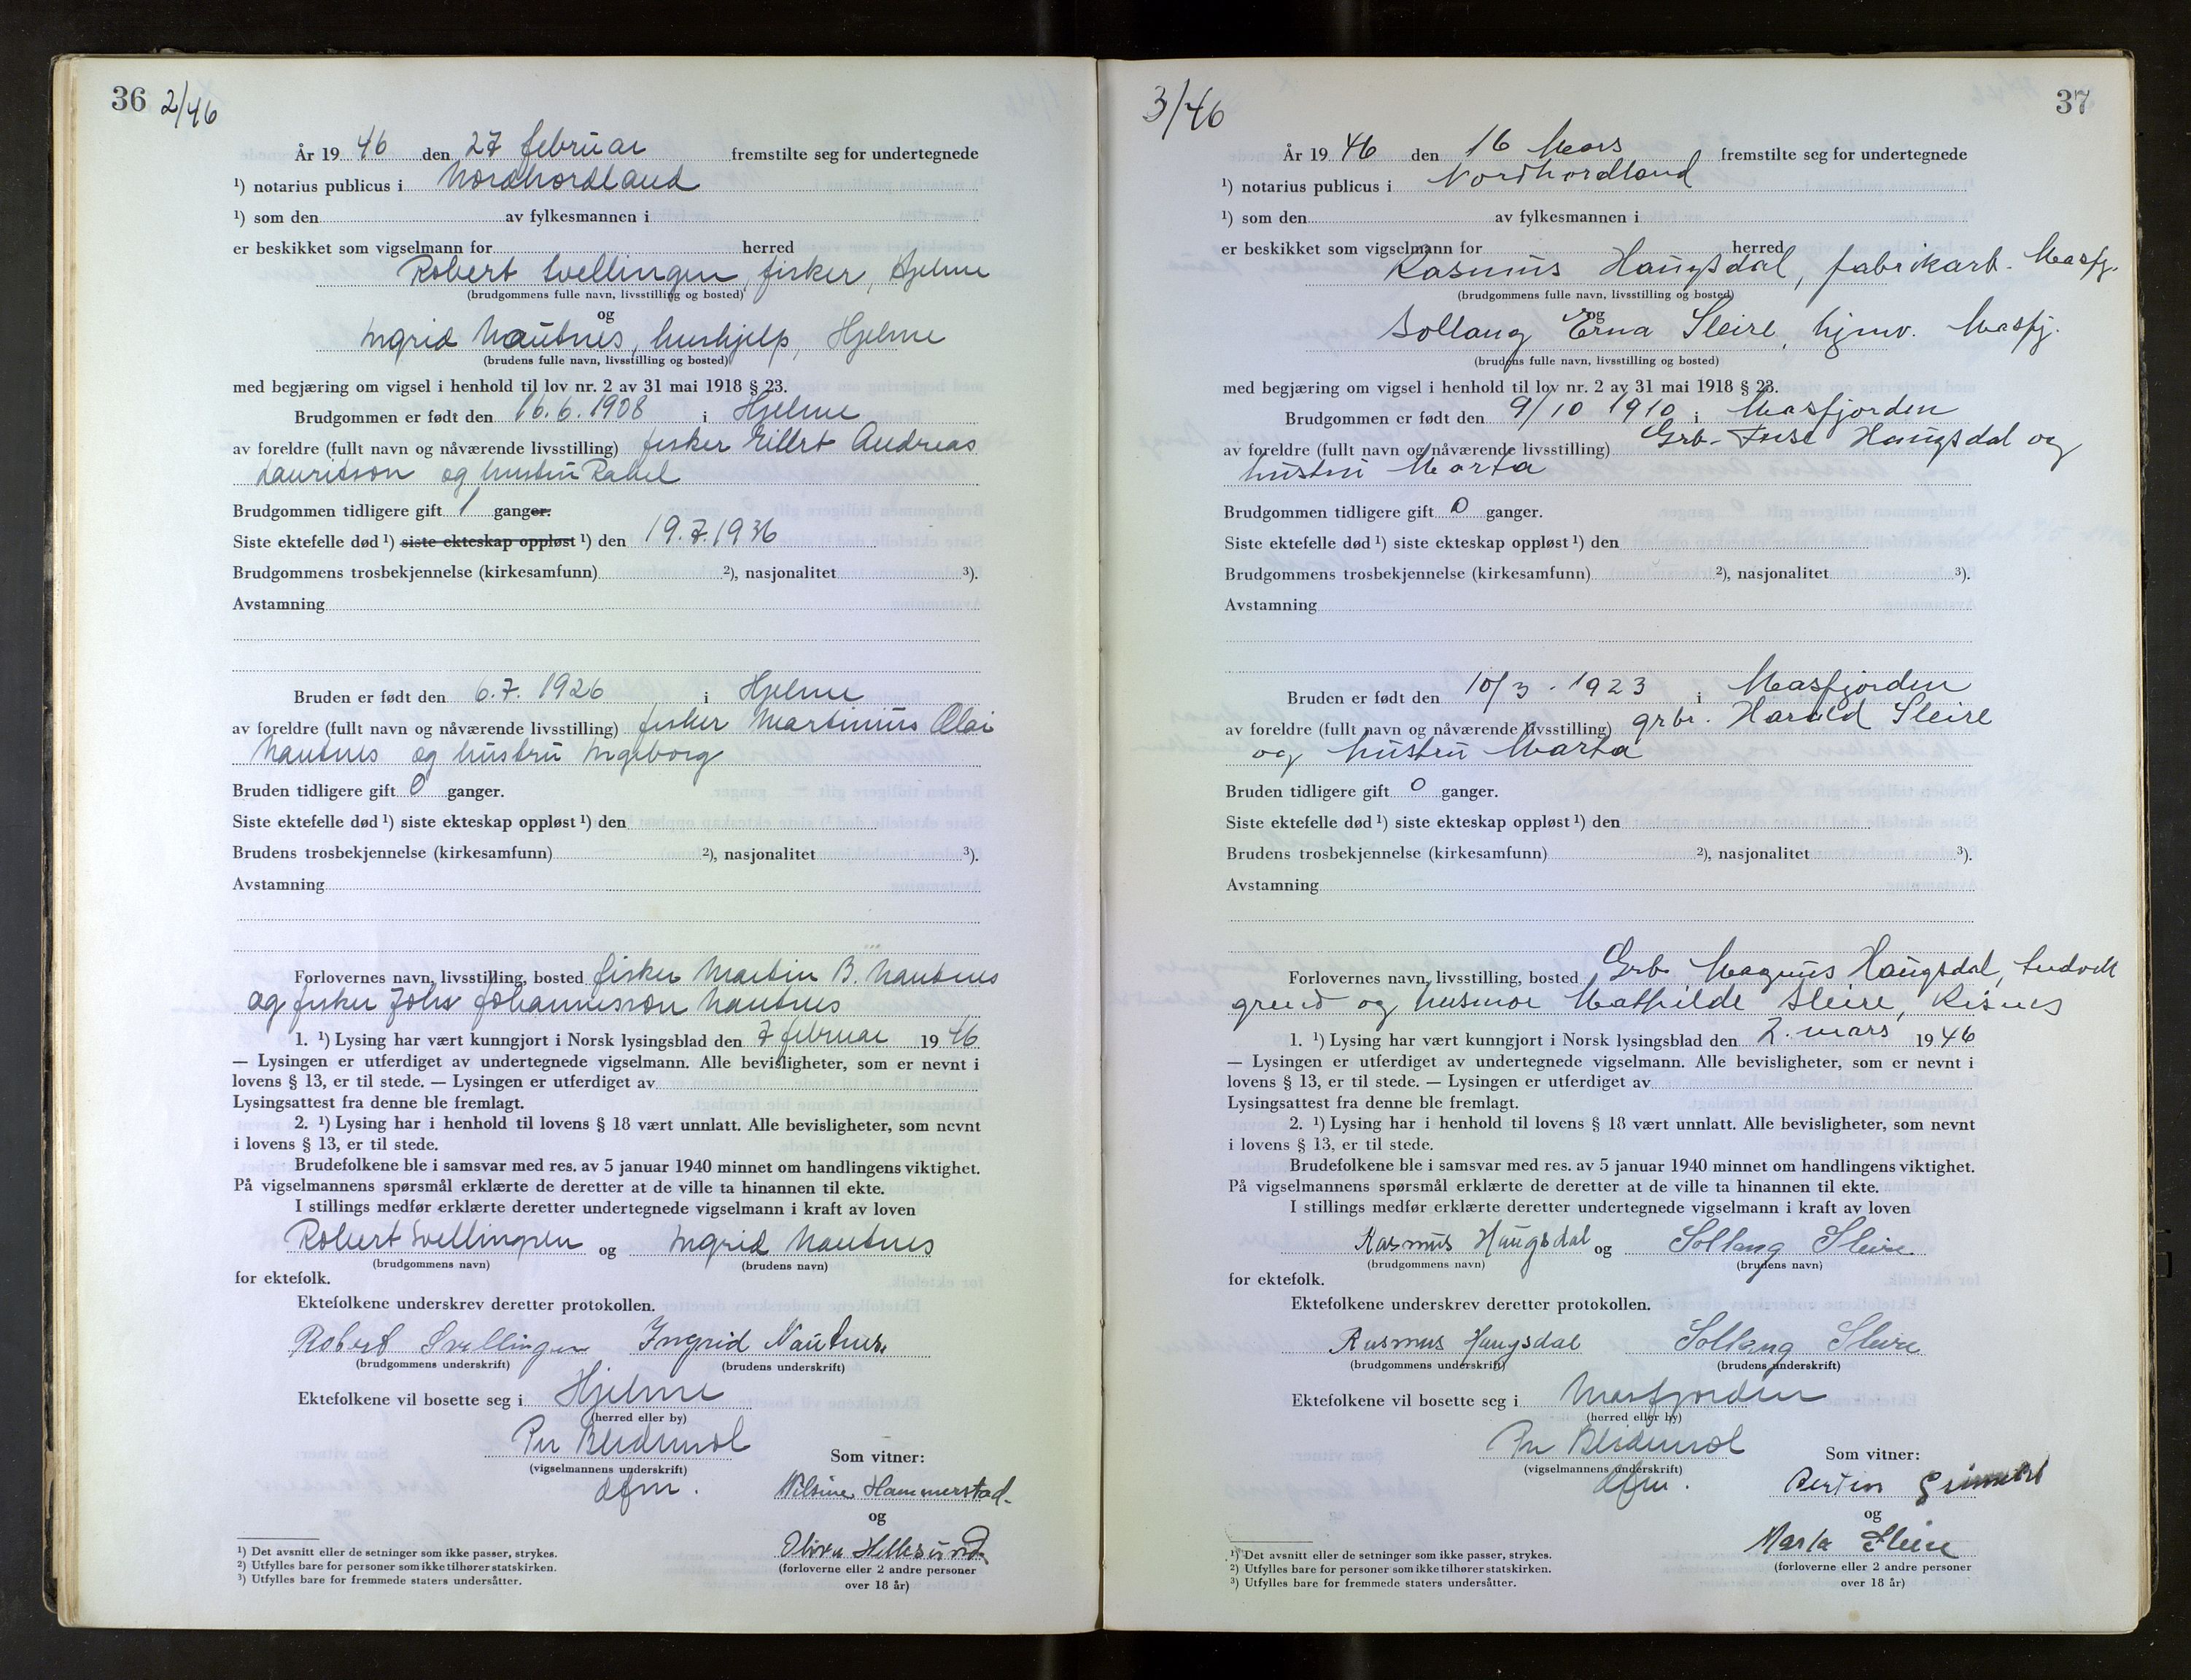 36 2/46
År 19 46 den 27 februar fremstilte seg for undertegnede
¹) notarius publicus i Nordhordland
¹) som den av fylkesmannen i
er beskikket som vigselmann for herred
Robert Svellingen, fisker, Hjelme
(brudgommens fulle navn, livsstilling og bosted)
og
Ingrid Nautnes, hushjelp, Hjelme
(brudens fulle navn, livsstilling og bosted)
med begjæring om vigsel i henhold til lov nr. 2 av 31 mai 1918 § 23.
Brudgommen er født den 16.6.1908 i Hjelme
av foreldre (fullt navn og nåværende livsstilling) fisker Eilert Andreas
Lauritson og hustru Rakel
Brudgommen tidligere gift 1 ganger.
Siste ektefelle død ¹) siste ekteskap oppløst ¹) den 19.7.1936
Brudgommens trosbekjennelse (kirkesamfunn) ²), nasjonalitet ³).
Avstamning
Bruden er født den 6.7. 1926 i Hjelme
av foreldre (fullt navn og nåværende livsstilling) fisker Martinius Olai
Nautnes og hustru Ingeborg
Bruden tidligere gift 0 ganger.
Siste ektefelle død ¹) siste ekteskap oppløst ¹) den
Brudens trosbekjennelse (kirkesamfunn) ²), nasjonalitet ³).
Avstamning
Forlovernes navn, livsstilling, bosted fisker Martin B. Nautnes
og fisker Johs Johannesson Nautnes
1. ¹) Lysing har vært kunngjort i Norsk lysingsblad den 7 februar 19 46
— Lysingen er utferdiget av undertegnede vigselmann. Alle bevisligheter, som er nevnt i
lovens § 13, er til stede. — Lysingen er utferdiget av
Lysingsattest fra denne ble fremlagt.
2. ¹) Lysing har i henhold til lovens § 18 vært unnlatt. Alle bevisligheter, som nevnt
i lovens § 13, er til stede.
Brudefolkene ble i samsvar med res. av 5 januar 1940 minnet om handlingens viktighet.
På vigselmannens spørsmål erklærte de deretter at de ville ta hinannen til ekte.
I stillings medfør erklærte deretter undertegnede vigselmann i kraft av loven
Robert Svellingen og Ingrid Nautnes
(brudgommens navn) (brudens navn)
for ektefolk.
Ektefolkene underskrev deretter protokollen.
Robert Svellingen Ingrid Nautnes.
(brudgommens underskrift) (brudens underskrift)
Ektefolkene vil bosette seg i Hjelme
(herred eller by)
Per
(vigselmannens underskrift) Som vitner:
dfm. Nilsine Hammerstad.
og
Oliva Hellesund.
(forloverne eller 2 andre personer
over 18 år)
¹) Det avsnitt eller de setninger som ikke passer, strykes.
²) Utfylles bare for personer som ikke tilhører statskirken.
³) Utfylles bare for fremmede staters undersåtter.
3/46 37
År 19 46 den 16 Mars fremstilte seg for undertegnede
¹) notarius publicus i Nordhordland
¹) som den av fylkesmannen i
er beskikket som vigselmann for herred
Rasmus Haugsdal, fabrikarb. Masfj.
(brudgommens fulle navn, livsstilling og bosted)
og
Sollaug Erna Sleire, hjmv. Masfj.
(brudens fulle navn, livsstilling og bosted)
med begjæring om vigsel i henhold til lov nr. 2 av 31 mai 1918 § 23.
Brudgommen er født den 9/10 1910 i Masfjorden
av foreldre (fullt navn og nåværende livsstilling) Grb. Haugsdal og
hustru Marta
Brudgommen tidligere gift 0 ganger.
Siste ektefelle død ¹) siste ekteskap oppløst ¹) den
Brudgommens trosbekjennelse (kirkesamfunn) ²), nasjonalitet ³).
Avstamning
Bruden er født den 10/3 . 1923 i Masfjorden
av foreldre (fullt navn og nåværende livsstilling) grbr. Harald Sleire
og hustru Marta
Bruden tidligere gift 0 ganger.
Siste ektefelle død ¹) siste ekteskap oppløst ¹) den
Brudens trosbekjennelse (kirkesamfunn) ²), nasjonalitet ³).
Avstamning
Forlovernes navn, livsstilling, bosted Grb Magnus Haugsdal,
og husmor Mathilde Sleire, Risnes
1. ¹) Lysing har vært kunngjort i Norsk lysingsblad den 2. mars 19 46
— Lysingen er utferdiget av undertegnede vigselmann. Alle bevisligheter, som er nevnt i
lovens § 13, er til stede. — Lysingen er utferdiget av
Lysingsattest fra denne ble fremlagt.
2. ¹) Lysing har i henhold til lovens § 18 vært unnlatt. Alle bevisligheter, som nevnt
i lovens § 13, er til stede.
Brudefolkene ble i samsvar med res. av 5 januar 1940 minnet om handlingens viktighet.
På vigselmannens spørsmål erklærte de deretter at de ville ta hinannen til ekte.
I stillings medfør erklærte deretter undertegnede vigselmann i kraft av loven
Rasmus Haugsdal og Sollaug Sleire
(brudgommens navn) (brudens navn)
for ektefolk.
Ektefolkene underskrev deretter protokollen.
Rasmus Haugsdal Sollaug Sleire
(brudgommens underskrift) (brudens underskrift)
Ektefolkene vil bosette seg i Masfjorden
(herred eller by)
Per
(vigselmannens underskrift) Som vitner:
dfm. Bertin
og
Marta Sleire
(forloverne eller 2 andre personer
over 18 år)
¹) Det avsnitt eller de setninger som ikke passer, strykes.
²) Utfylles bare for personer som ikke tilhører statskirken.
³) Utfylles bare for fremmede staters undersåtter.